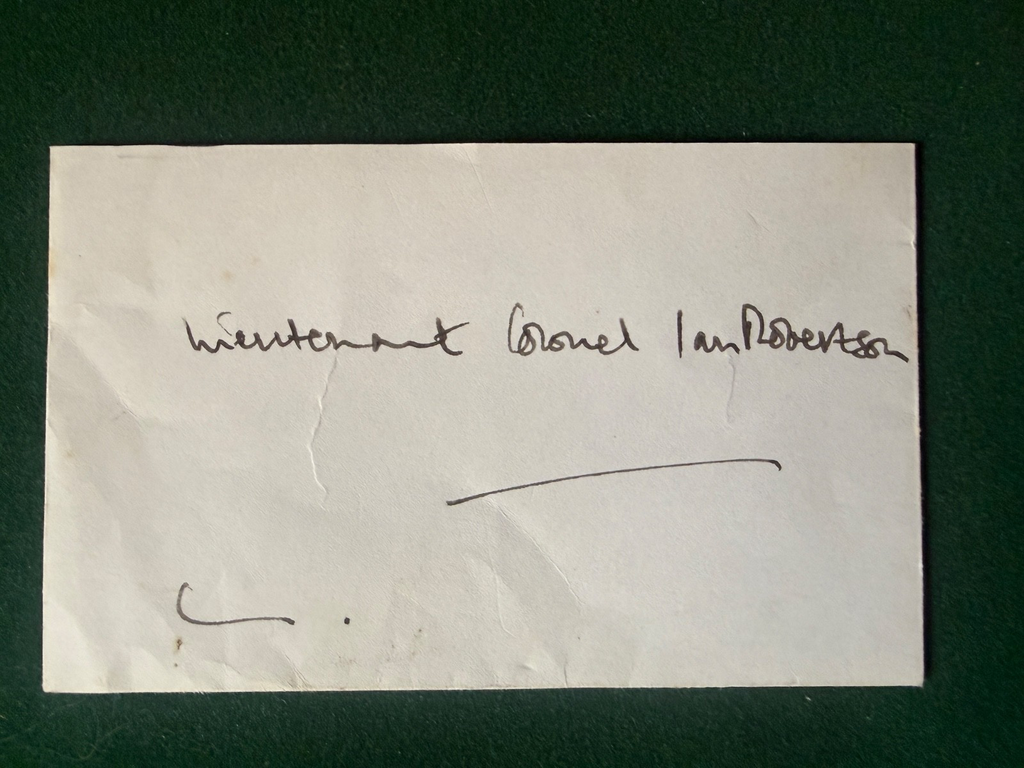 Lieutenant Colonel Ian Robertson